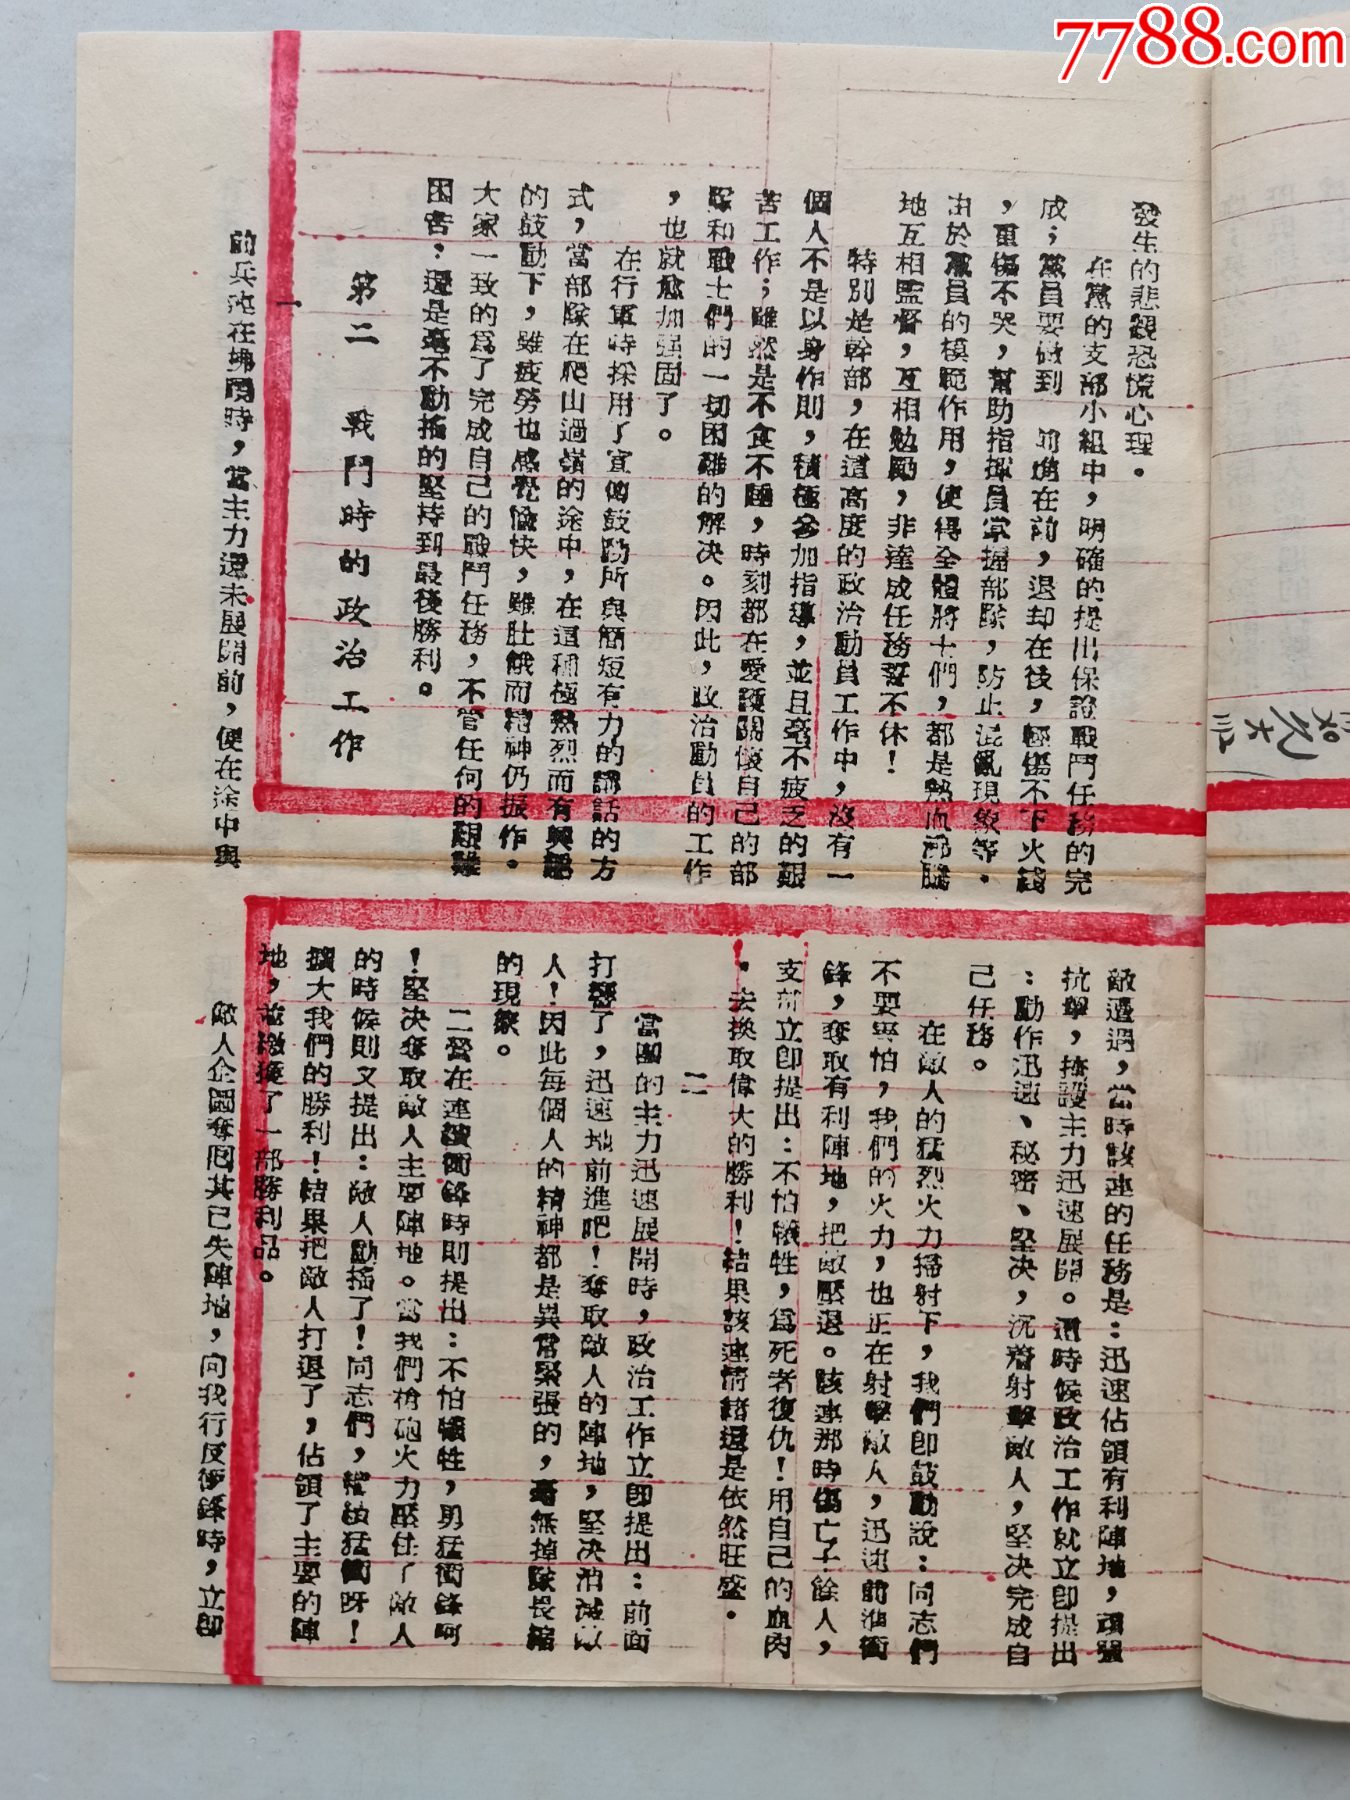 7788.com
發生的悲觀恐慌心理。
在黨的支部小組中，明確的提出保證戰鬥任務的完
成；黨員要做到 前進在前，退却在後，輕傷不下火綫
，重傷不哭，幫助指揮員掌握部隊，防止混亂現象等。
由於黨員的模範作用，使得全體將士們，都是熱血沸騰
地互相監督，互相勉勵，非達成任務誓不休！
特別是幹部，在這高度的政治動員工作中，沒有一
個人不是以身作則，積極參加指導，並且毫不疲乏的艱
苦工作；雖然是不食不睡，時刻都在愛護關懷自己的部
隊和戰士們的一切困難的解决。因此，政治動員的工作
，也就愈加强固了。
在行軍時採用了宣傳鼓勵所與簡短有力的講話的方
式，當部隊在爬山過嶺的途中，在這種極熱烈而有興趣
的鼓動下，雖疲勞也感覺愉快，雖肚餓而精神仍振作。
大家一致的爲了完成自己的戰鬥任務，不管任何的艱難
困苦；還是毫不動搖的堅持到最後勝利。
第二 戰鬥時的政治工作
一
前兵連在拂曉時，當主力還未展開前，便在途中與
敵遭遇，當時該連的任務是：迅速佔領有利陣地，頑强
抗擊，掩護主力迅速展開。這時候政治工作就立卽提出
：動作迅速、秘密、堅决，沉着射擊敵人，堅决完成自
己任務。
在敵人的猛烈火力掃射下，我們卽鼓動說：同志們
不要害怕，我們的火力，也正在射擊敵人，迅速前進衝
鋒，奪取有利陣地，把敵壓退。該連那時傷亡子餘人，
支部立卽提出：不怕犧牲，爲死者復仇！用自己的血肉
，去換取偉大的勝利！結果該連情緒還是依然旺盛。
二
當團的主力迅速展開時，政治工作立卽提出：前面
打響了，迅速地前進吧！奪取敵人的陣地，堅决消滅敵
人！因此每個人的精神都是異常緊張的，毫無掉隊畏縮
的現象。
二營在連續衝鋒時則提出：不怕犧牲，勇猛衝鋒呵
！堅决奪取敵人主要陣地。當我們槍砲火力壓住了敵人
的時候則又提出：敵人動搖了！同志們，繼續猛衝呀！
擴大我們的勝利！結果把敵人打退了，佔領了主要的陣
地，並繳獲了一部勝利品。
敵人企圖奪回其已失陣地，向我行反衝鋒時，立卽